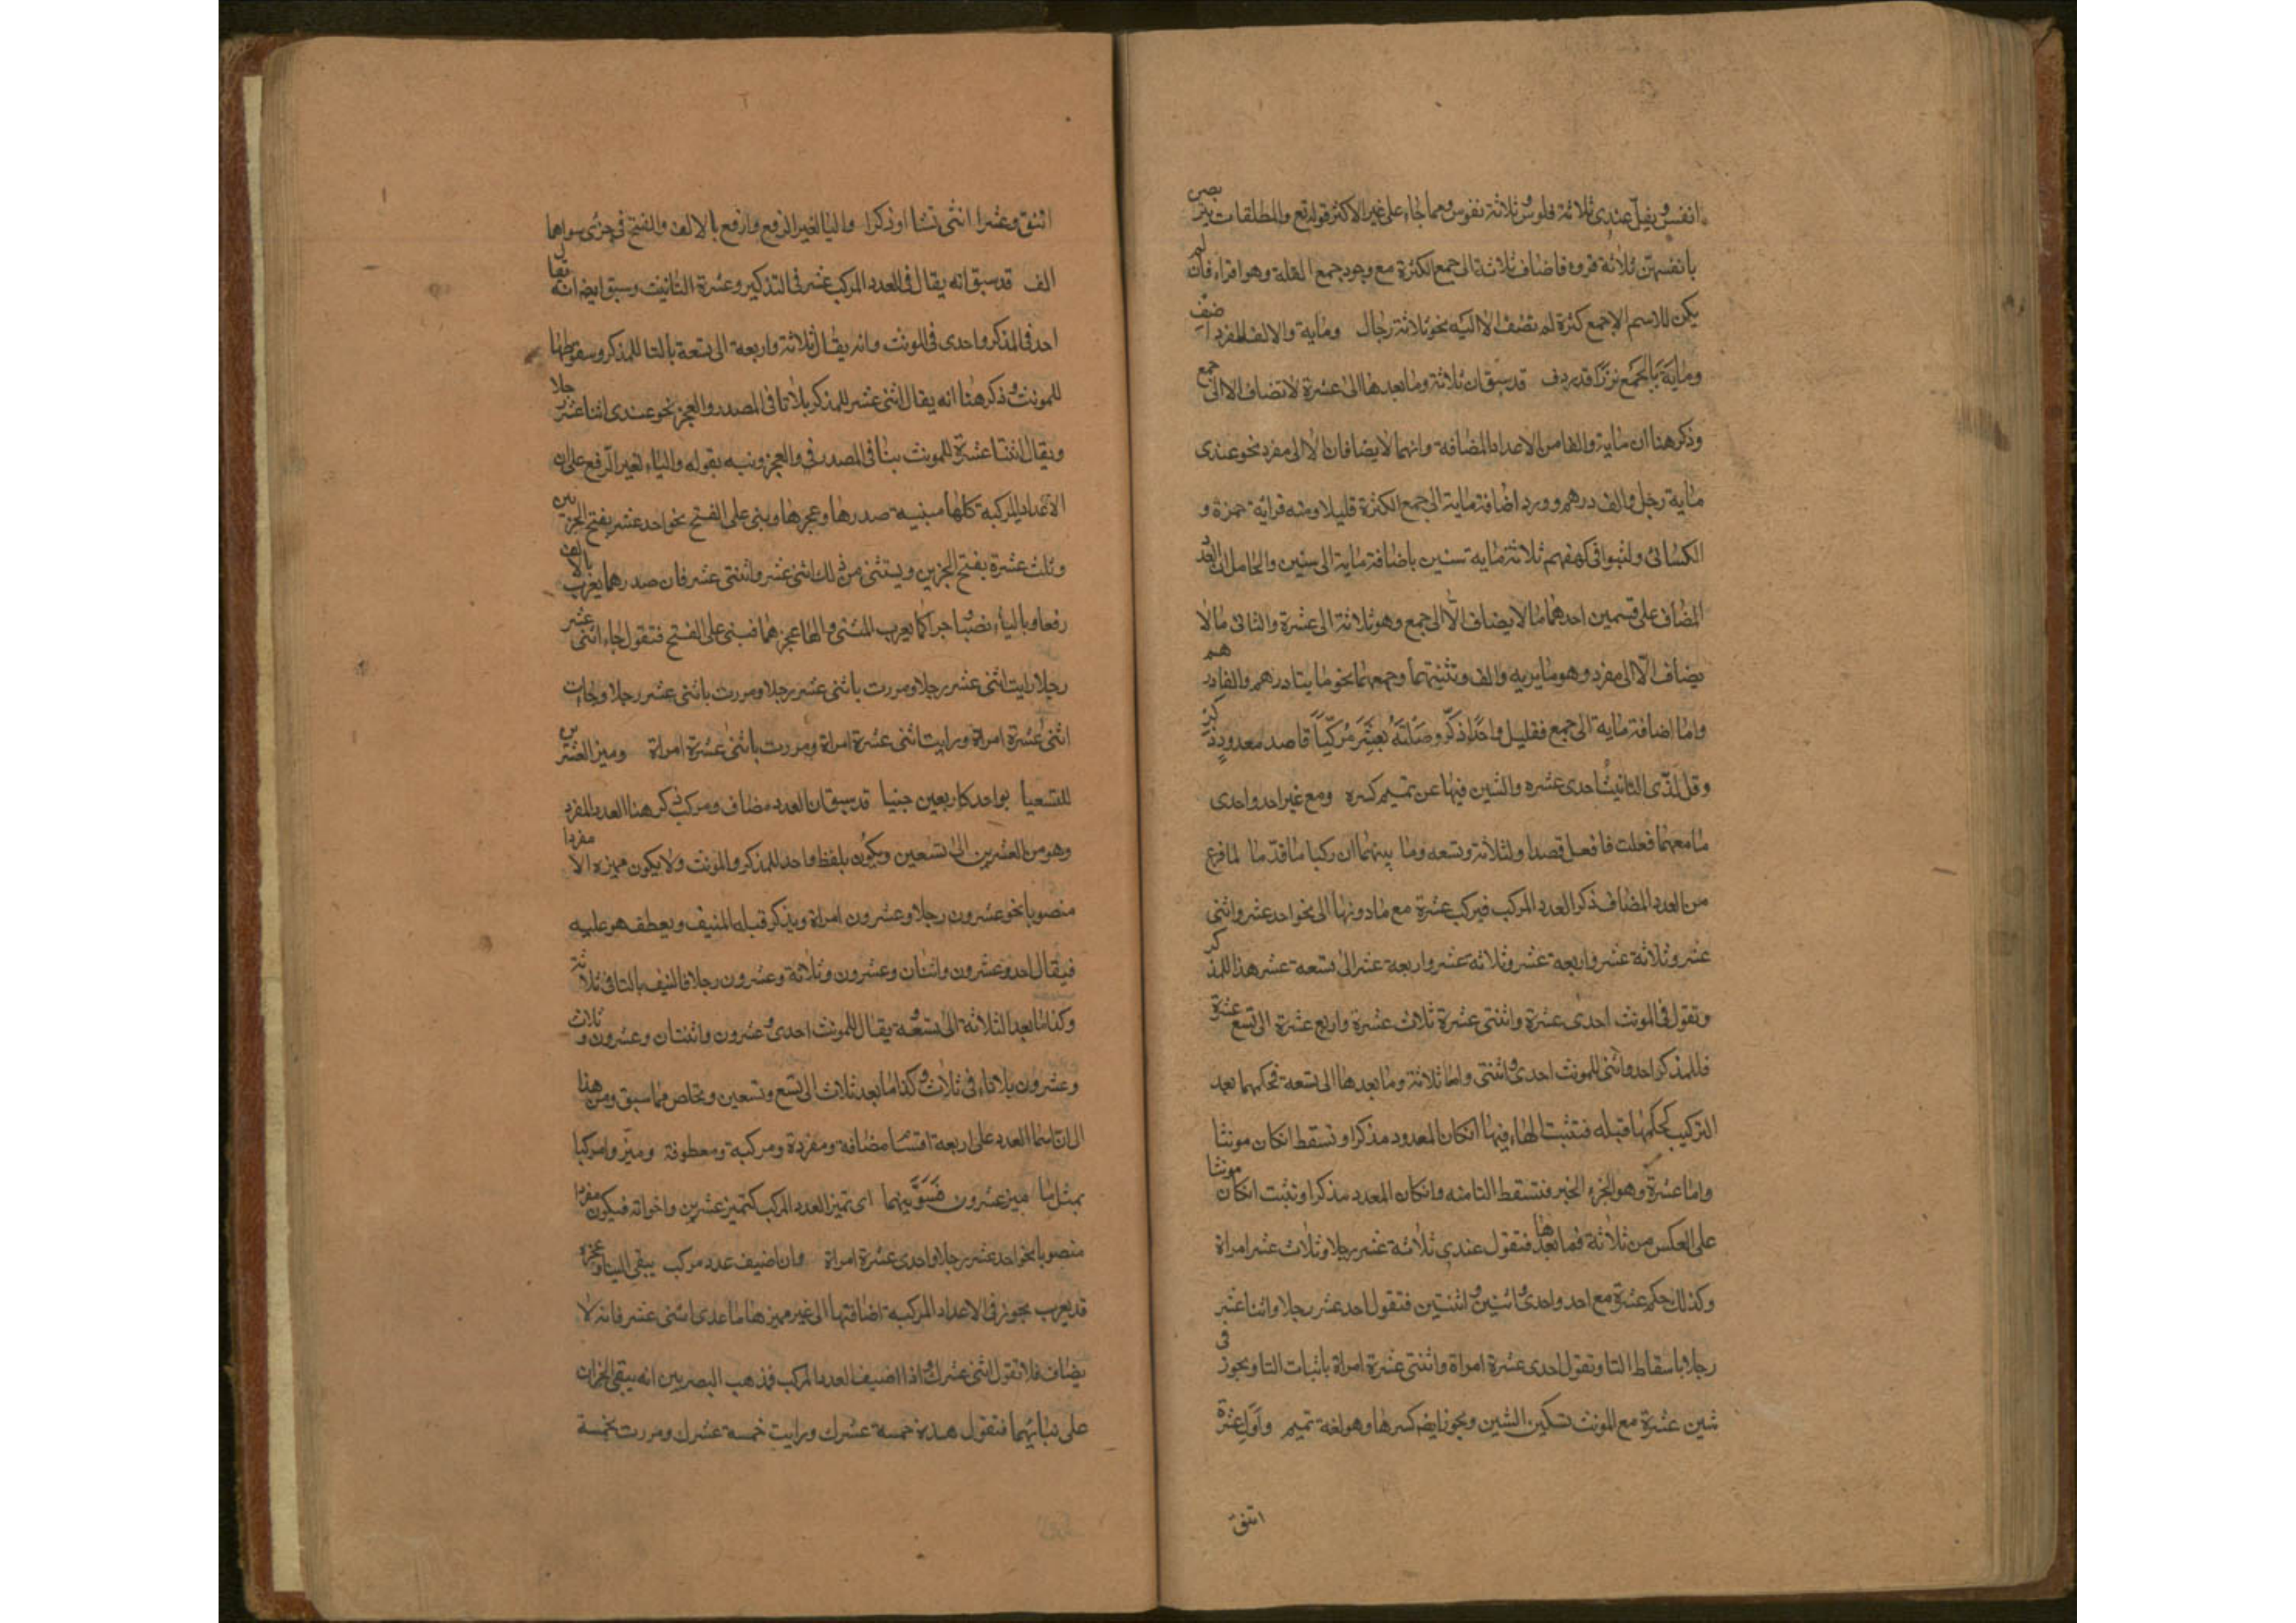 انفس ويقل عندى ثلاثة فلوس وثلاثة نفوس ومما جاء على غير الاكثر قوله تع والمطلقات يتربصن
بانفسهن ثلاثة قروء فاضاف ثلاثة الى جمع الكثرة مع وجود جمع القلة وهو اقراء فان لم
يكن للاسم الا جمع كثرة لم تضف الا اليه نحو ثلاثة رجال وماية والالف للمفرد اضف
وماية بالجمع نزرا قد ردف قد سبق ان ثلاثة وما بعدها الى عشرة لا تضاف الا الى جمع
وذكر هنا ان ماية والفا من الاعداد المضافة وانهما لا يضافان الا الى مفرد نحو عندى
ماية رجل والف درهم وورد اضافة ماية الى جمع الكثرة قليلا ومنه قراية حمزة و
الكسائى ولبثوا فى كهفهم ثلاثة ماية سنين باضافة ماية الى سنين والحاصل ان العدد
المضاف على قسمين احدهما ما لا يضاف الا الى جمع وهو ثلاثة الى عشرة والثانى ما لا
يضاف الا الى مفرد وهو ماية والف وتثنيتهما وجمعهما نحو مايتا درهم والفا درهم
واما اضافة ماية الى جمع فقليل واحدا ذكر وصلنه بعشر مركبا قاصد معدود ذكر
وقل لدى التانيث احدى عشره والشين فيها عن تميم كسره ومع غير احد واحدى
ما معهما فعلت فافعل قصدا ولثلاثة وتسعه وما بينهما ان ركبا ما قدما لما فرغ
من العدد المضاف ذكر العدد المركب فيركب عشرة مع ما دونها الى نحو احد عشر واثنى
عشر وثلاثة عشر واربعة عشر وثلاثة عشر واربعة عشر الى تسعة عشر هذا للمذكر
وتقول فى المونث احدى عشرة واثنتى عشرة ثلاث عشرة واربع عشرة الى تسع عشرة
فللمذكر احد واثنى للمونث احدى واثنتى واما ثلاثة وما بعدها الى تسعة فحكمها بعد
التركيب كحكمها قبله فتثبت الهاء فيها انكان المعدود مذكرا وتسقط انكان مونثا
واما عشرة وهو الجزء الخير فتسقط التا منه وانكان المعدد مذكرا وتثبت انكان مونثا
على العكس من ثلاثة فما بعدها فتقول عندى ثلاثة عشر رجلا وثلاث عشر امراة
وكذلك حكم عشرة مع احد واحدى واثنين واثنتين فتقول احد عشر رجلا واثنا عشر
رجلا باسقاط التا وتقول احدى عشرة امراة واثنتى عشرة امراة باثبات التا ويجوز فى
شين عشرة مع المونث تسكين الشين ويجوز ايضا كسرها وهو لغة تميم واول عشرة
اثنتى
اثنتى وعشرا اثنى تشا او ذكرا واليا لغير الرفع وارفع بالالف والفتح فى جزى سواهما
الف قد سبق انه يقال فى العدد المركب عشر فى التذكير وعشرة التانيث وسبق ايضا انه يقال
احد فى المذكر واحدى فى المونث وانه يقال ثلاثة واربعة الى تسعة بالتا للمذكر وسقوطها
للمونث وذكر هنا انه يقال اثنى عشر للمذكر بلا تا فى المصدر والعجز نحو عندى اثنا عشر رجلا
ويقال اثنتا عشرة للمونث بتا فى المصدر فى والعجز ونبه بقوله والياء لغير الرفع على ان
الاعداد المركبة كلها مبنية صدرها وعجزها وبنى على الفتح نحو احد عشر بفتح الجزين
وثلث عشرة بفتح الجزين ويستثنى من ذلك اثنى عشر واثنتى عشر فان صدرهما يعرب بالالف
رفعا وبالياء نصبا جرا كما يعرب المثنى واما عجزهما فبنى على الفتح فتقول جاء اثنى عشر
رجلا رايت اثنى عشر رجلا ومررت باثنى عشر رجلا ومررت باثنى عشر رجلا وجات
اثنى عشرة امراة ورايت اثنى عشرة امراة ومررت باثنى عشرة امراة وميز العشرين
للتسعينا بواحد كاربعين حينا قد سبق ان العدد مضاف ومركب ذكر هنا العدد المفرد
وهو من العشرين الى تسعين ويكون بلفظ واحد للمذكر والمونث ولا يكون مميزه الا مفردا
منصوبا نحو عشرون رجلا وعشرون امراة ويذكر قبله المنيف ويعطف هو عليه
فيقال احد وعشرون واثنان وعشرون وثلاثة وعشرون رجلا فالنيف بالتا فى ثلاثة
وكذا ما بعد الثلاثة الى تسعة ويقال للمونث احدى وعشرون واثنتان وعشرون وثلاث
وعشرون بلا تاء فى ثلاث وكذا ما بعد ثلاث الى تسع وتسعين وتخلص مما سبق ومن هذا
ان اسما العدد على اربعة اقسا مضافة ومفردة ومركبة ومعطوفة وميزوا مركبا
بمثل ما ميز عشرون فسوينهما اى تميز العدد المركب كتميز عشرين واخواته فيكون مفردا
منصوبا نحو احد عشر رجلا واحدى عشرة امراة وان اضيف عدد مركب يبقى البنا وعجزه
قد يعرب يجوز فى الاعداد المركبة اضافتها الى غير مميزها ما عدى اثنى عشر فانه لا
يضاف فلا تقول اثنى عشرك واذا اضيف العدد المركب فمذهب البصريين انه يبقى الجزان
على بنائهما فتقول هذه خمسة عشرك ورايت خمسة عشرك ومررت بخمسة